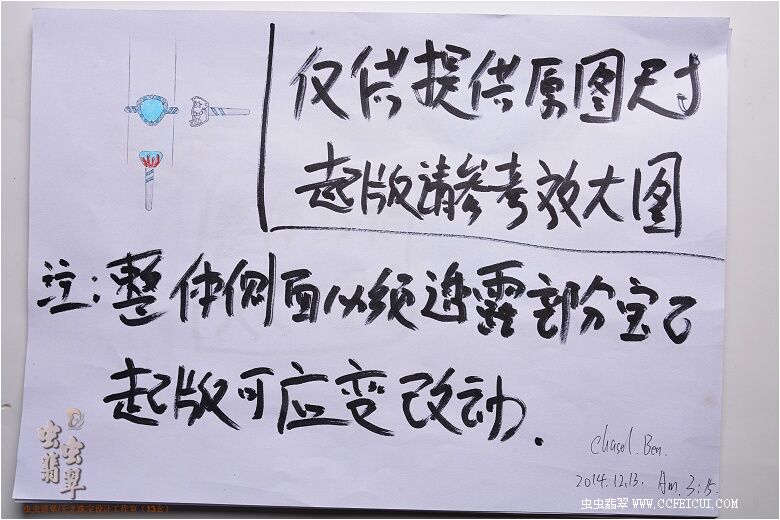 仅供提供原图尺寸
起版请参考放大图
注:整体侧面必须透露部分宝石
起版可应变改动.
Chasel. Ben.
2014.12.13. Am. 3:15.
虫虫翡翠
虫虫翡翠/王光珠宝设计工作室(13幺)
虫虫翡翠 WWW.CCFEICUI.COM